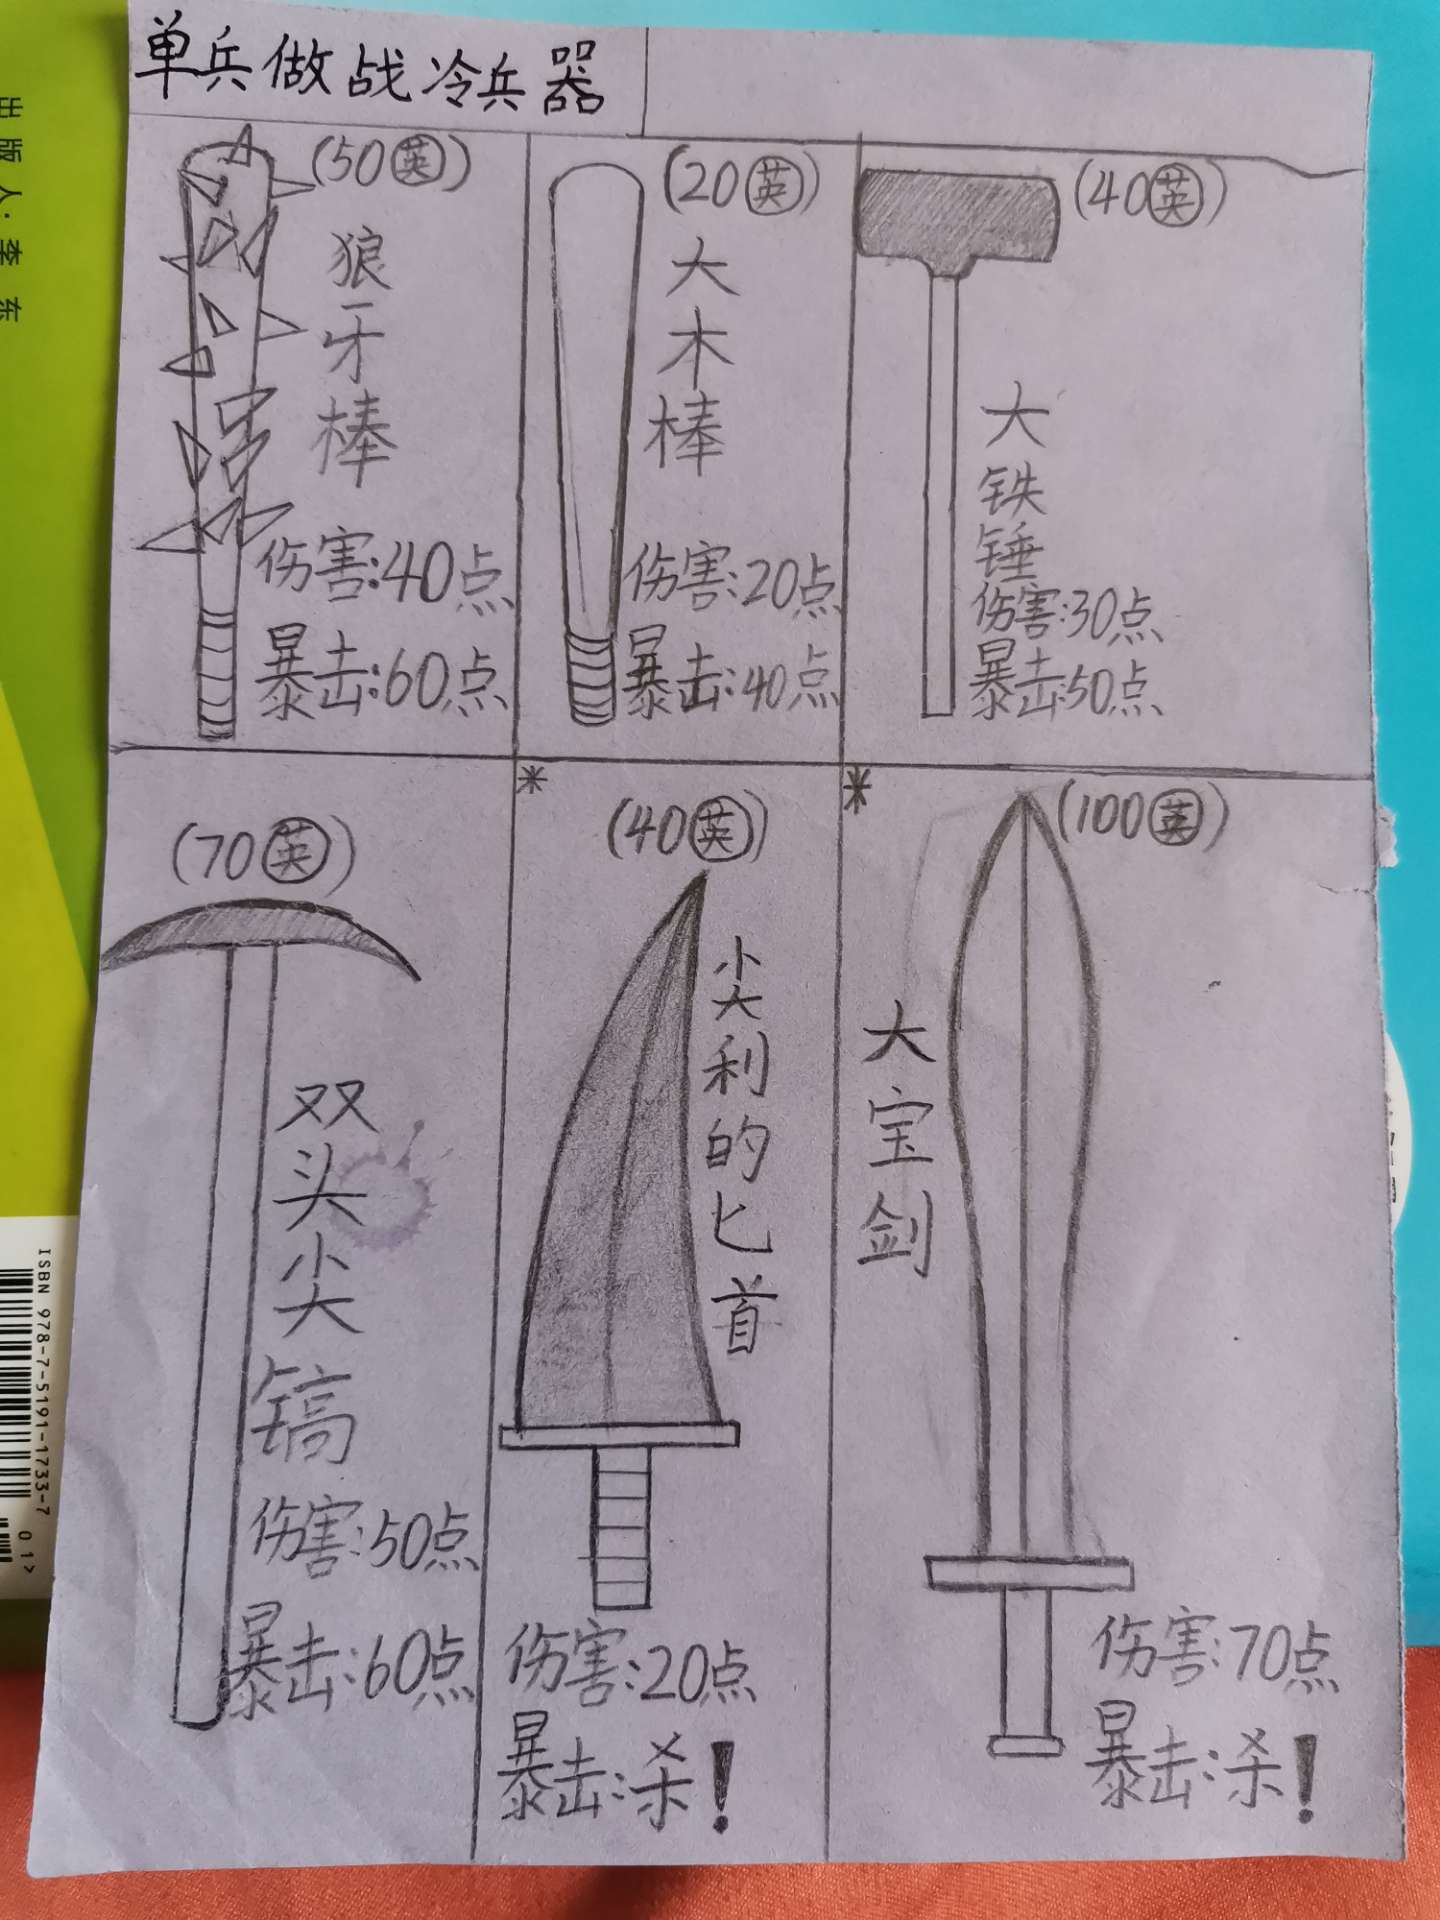 单兵做战冷兵器
(50英)
狼牙棒
伤害:40点
暴击:60点
(20英)
大木棒
伤害:20点
暴击:40点
(40英)
大铁锤
伤害:30点
暴击:50点
(70英)
双头尖镐
伤害:50点
暴击:60点
*
(40英)
尖利的匕首
伤害:20点
暴击:杀!
*
(100英)
大宝剑
伤害:70点
暴击:杀!
出版人:李东
ISBN 978-7-5191-1733-7
01>